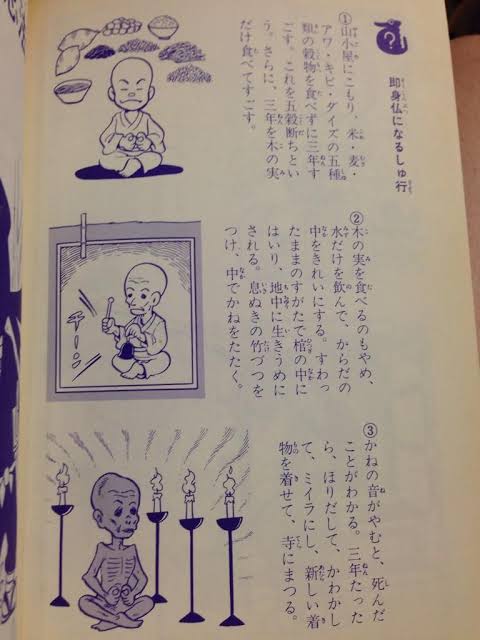 ?
即身仏になるしゅ行
①山小屋にこもり、米・麦・
アワ・キビ・ダイズの五種
類の穀物を食べずに三年す
ごす。これを五穀断ちとい
う。さらに、三年を木の実
だけ食べてすごす。
②木の実を食べるのもやめ、
水だけを飲んで、からだの
中をきれいにする。すわっ
たままのすがたで棺の中に
はいり、地中に生きうめに
される。息ぬきの竹づつを
つけ、中でかねをたたく。
チーン
③かねの音がやむと、死んだ
ことがわかる。三年たった
ら、ほりだして、かわかし
て、ミイラにし、新しい着
物を着せて、寺にまつる。